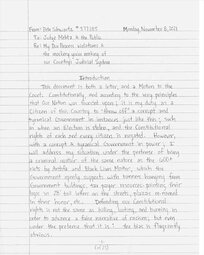 From: Pete Schwartz # 377183 Monday, November 8, 2021
To: Judge Mehta & the Public
Re: My Due Process violations &
the mockery upon making of
our Country's Judicial System
Introduction
This document is both a letter, and a Motion to the
Court. Constitutionally, and according to the very principles
that Our Nation was founded upon; it is my duty, as a
Citizen of this Country to "throw off" a corrupt and
tyrannical Government in instances just like this; such
as when an Election is stolen, and the Constitutional
rights of each and every citizen is negated. However,
with a corrupt & tyrannical Government in power; I
will address my situation under the pretense of being
a criminal matter of the same nature as the 600+
riots by Antifa and Black Lives Matter; which the
Government openly supports with banners hanging from
Government buildings, tax payer resources painting their
logo in 25' tall letters on the streets, plazas re-named
in their honor, etc. Defending our Constitutional
rights is not the same as killing, looting, and burning, in
order to advance a false narrative of racism; but even
under the pretense that it is; the bias is flagrantly
obvious.